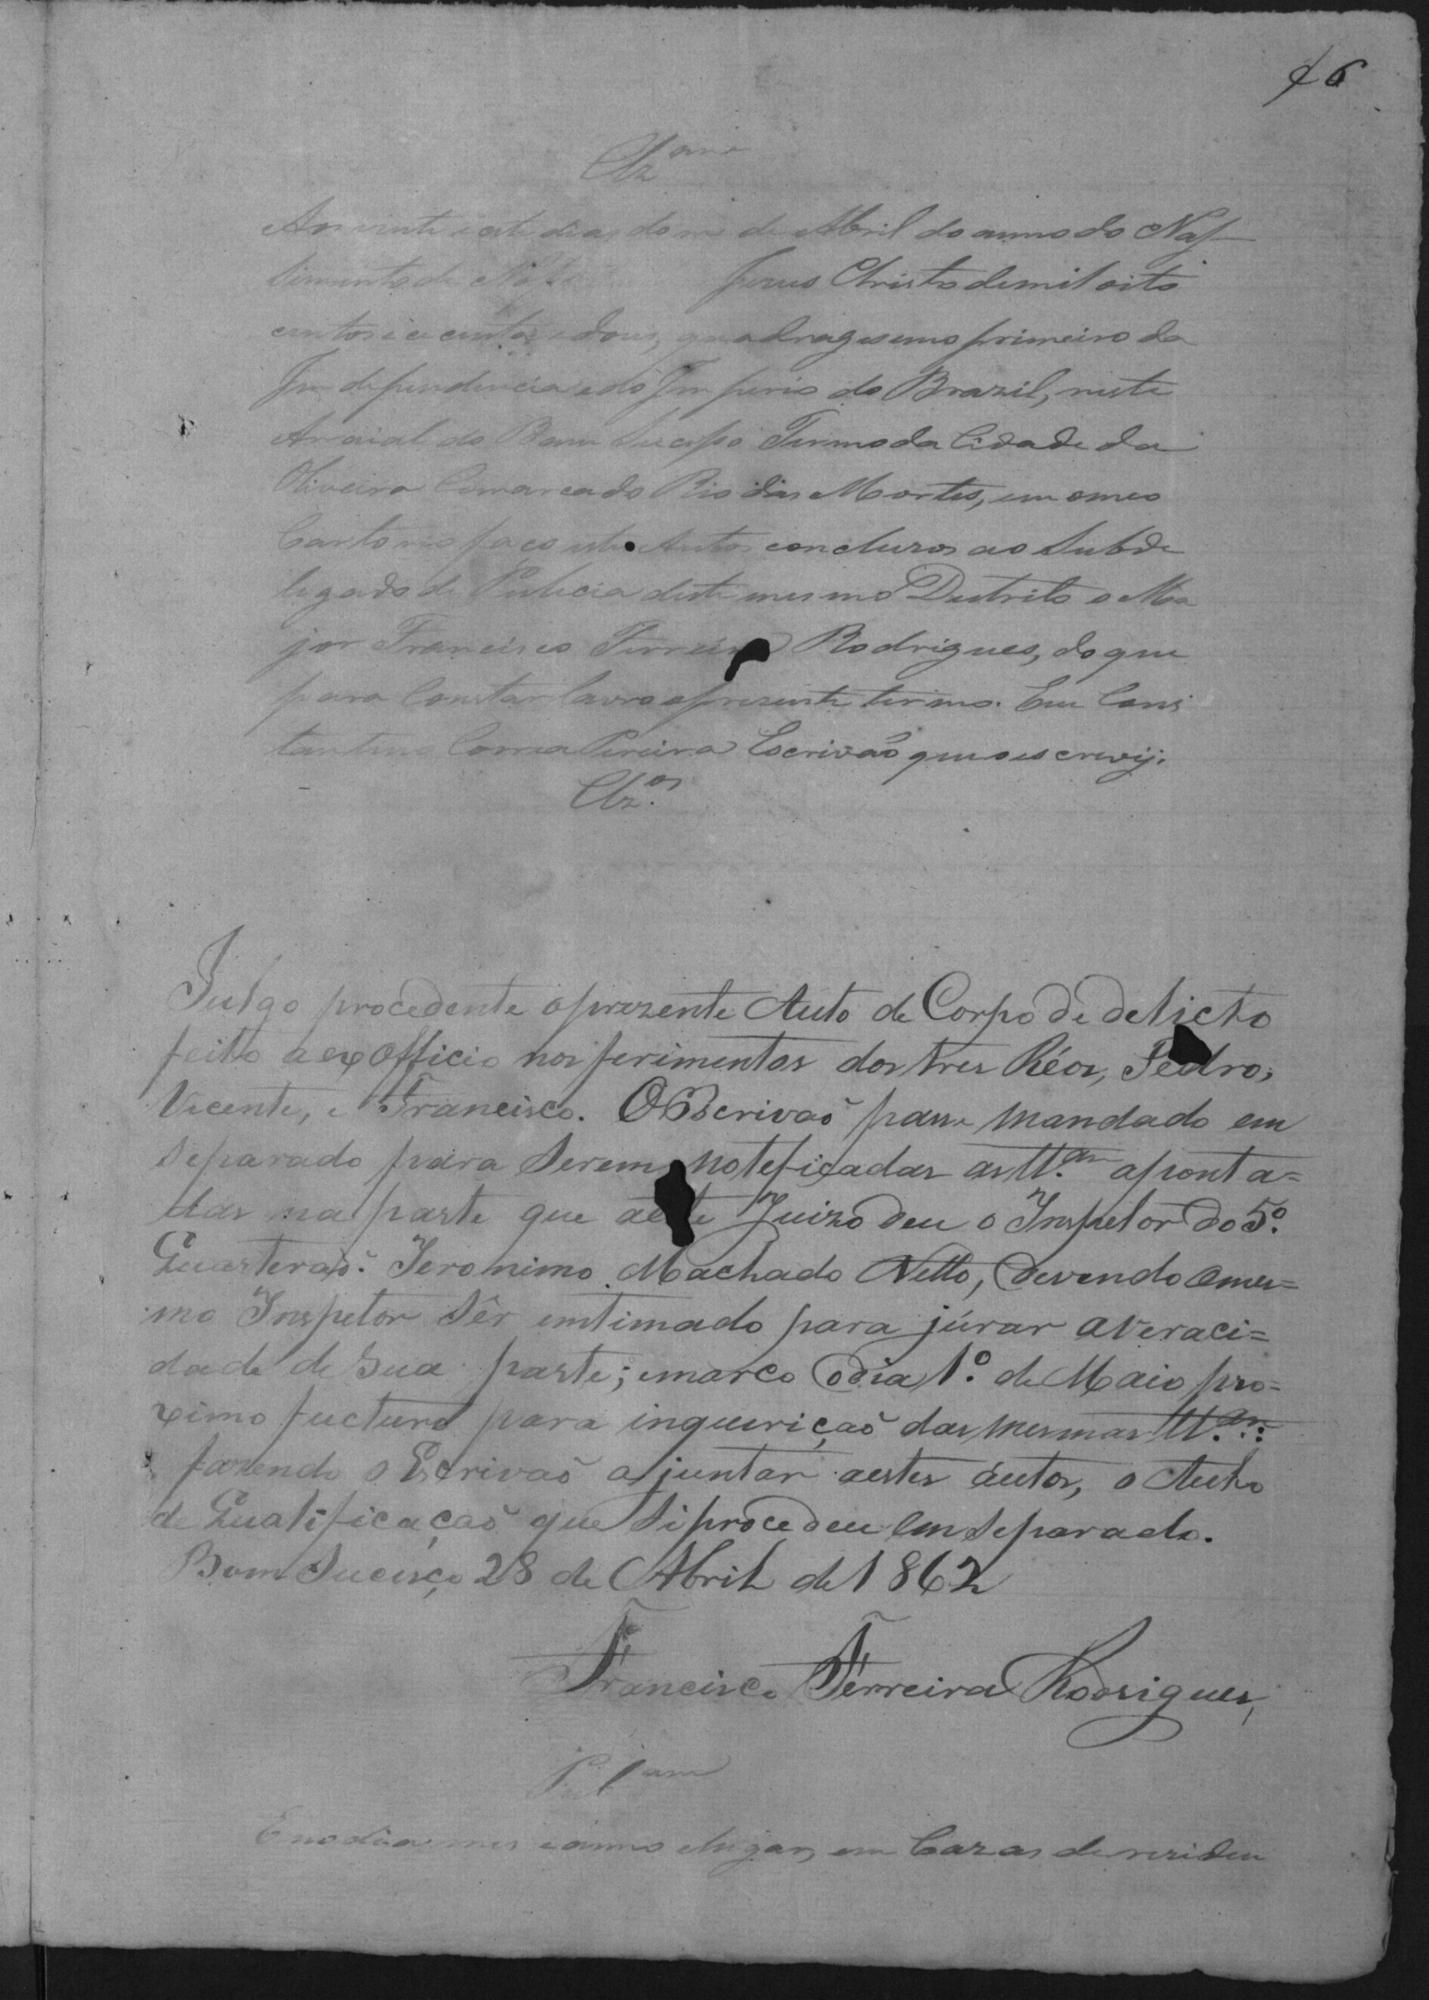 46
Clz.am
Aos vinte e sete dias do mes de Abril do anno do Nas-
cimento de Nosso Jezus Christo de mil oito
centos e cecenta e dous, quadragesemo primeiro da
Independencia e do Imperio do Brazil, neste
Arraial do Bom Sucesso Termo da Cidade da
Oliveira Comarca do Rio das Mortes, em o meo
Cartorio faço estes Autos concluzos ao Subde
legado de Policia deste mesmo Destrito o Ma
jor Francisco Ferreira Rodrigues, do que
para Constar lavro o prezente termo. Eu Cons
tantino Correa Pereira Escrivaõ que o escrevij.
Clz.os
Julgo procedente o prezente Auto de Corpo de delicto
feito a ex Officio nos ferimentos dos tres Réos, Pedro,
Vicente, e Francisco. O Escrivaõ passe mandado em
separado para serem noteficadas as tt.as aponta=
das na parte que a este Juizo deu o Inspetor do 5º.
Quarteraõ. Jeronimo Machado Netto, devendo o mes=
mo Inspetor sêr emtimado para júrar a veraci=
dade de sua parte; e marco o dia 1º. de Maio pro=
ximo fucturo para inqueriçaõ das mesmas tt.as:
fazendo o Escrivaõ ajuntar a estes autos, o Auto
de Qualificaçaõ que si procedeu em separado.
Bom Sucisço 28 de Abril de 1862
Francisco Ferreira Rodrigues,
Pub.am
E no dia mes e anno e lugar, em Cazas de reziden